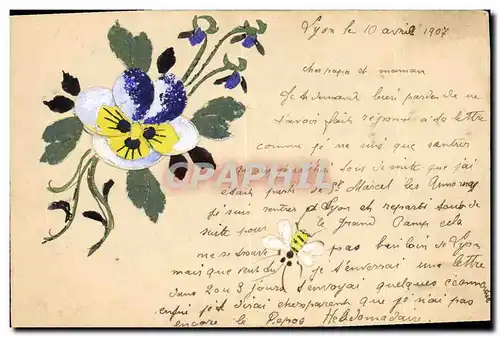 Lyon le 10 avril 1907
cher papa et maman
Je te demande bien pardon de ne
t'avoir fait reponse a ta lettre
comme je ne suis que rentrer
que tout de suite que j'ai
etait parti de St Marcel les
Je suis rentrer a Lyon et reparti tout de
suite pour le grand Camp cela
ne se trouve pas bien loin de Lyon
mais que veut tu je t'enverrai une lettre
dans 2 ou 3 jours t'envoyai quelques
enfin je dirai chers parents que je n'ai pas
encore le Repos Hebdomadaire.
CPArama.com